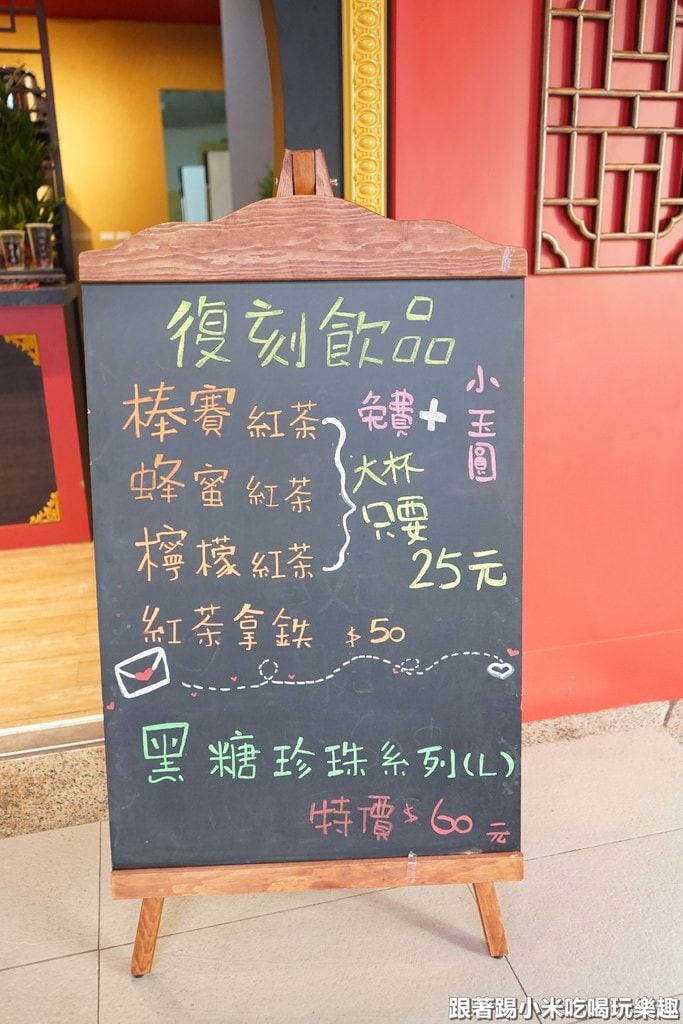 復刻飲品
棒賽紅茶
蜂蜜紅茶
檸檬紅茶
免費+小玉圓
大杯
只要
25元
紅茶拿鉄 $50
黑糖珍珠系列(L)
特價$60元
跟著踢小米吃喝玩樂趣